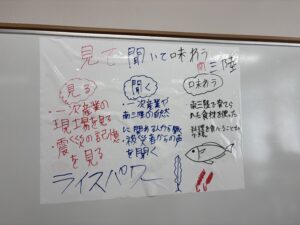 見て聞いて味わう
南三陸
見る
・一次産業の
現場を見る
・震災の記憶
を見る
聞く
・一次産業や
南三陸の自然
に関わる人から聞く
・被災者からの声
を聞く
味わう
南三陸で育てら
れた食材を使った
料理を食べること
ライスパワー